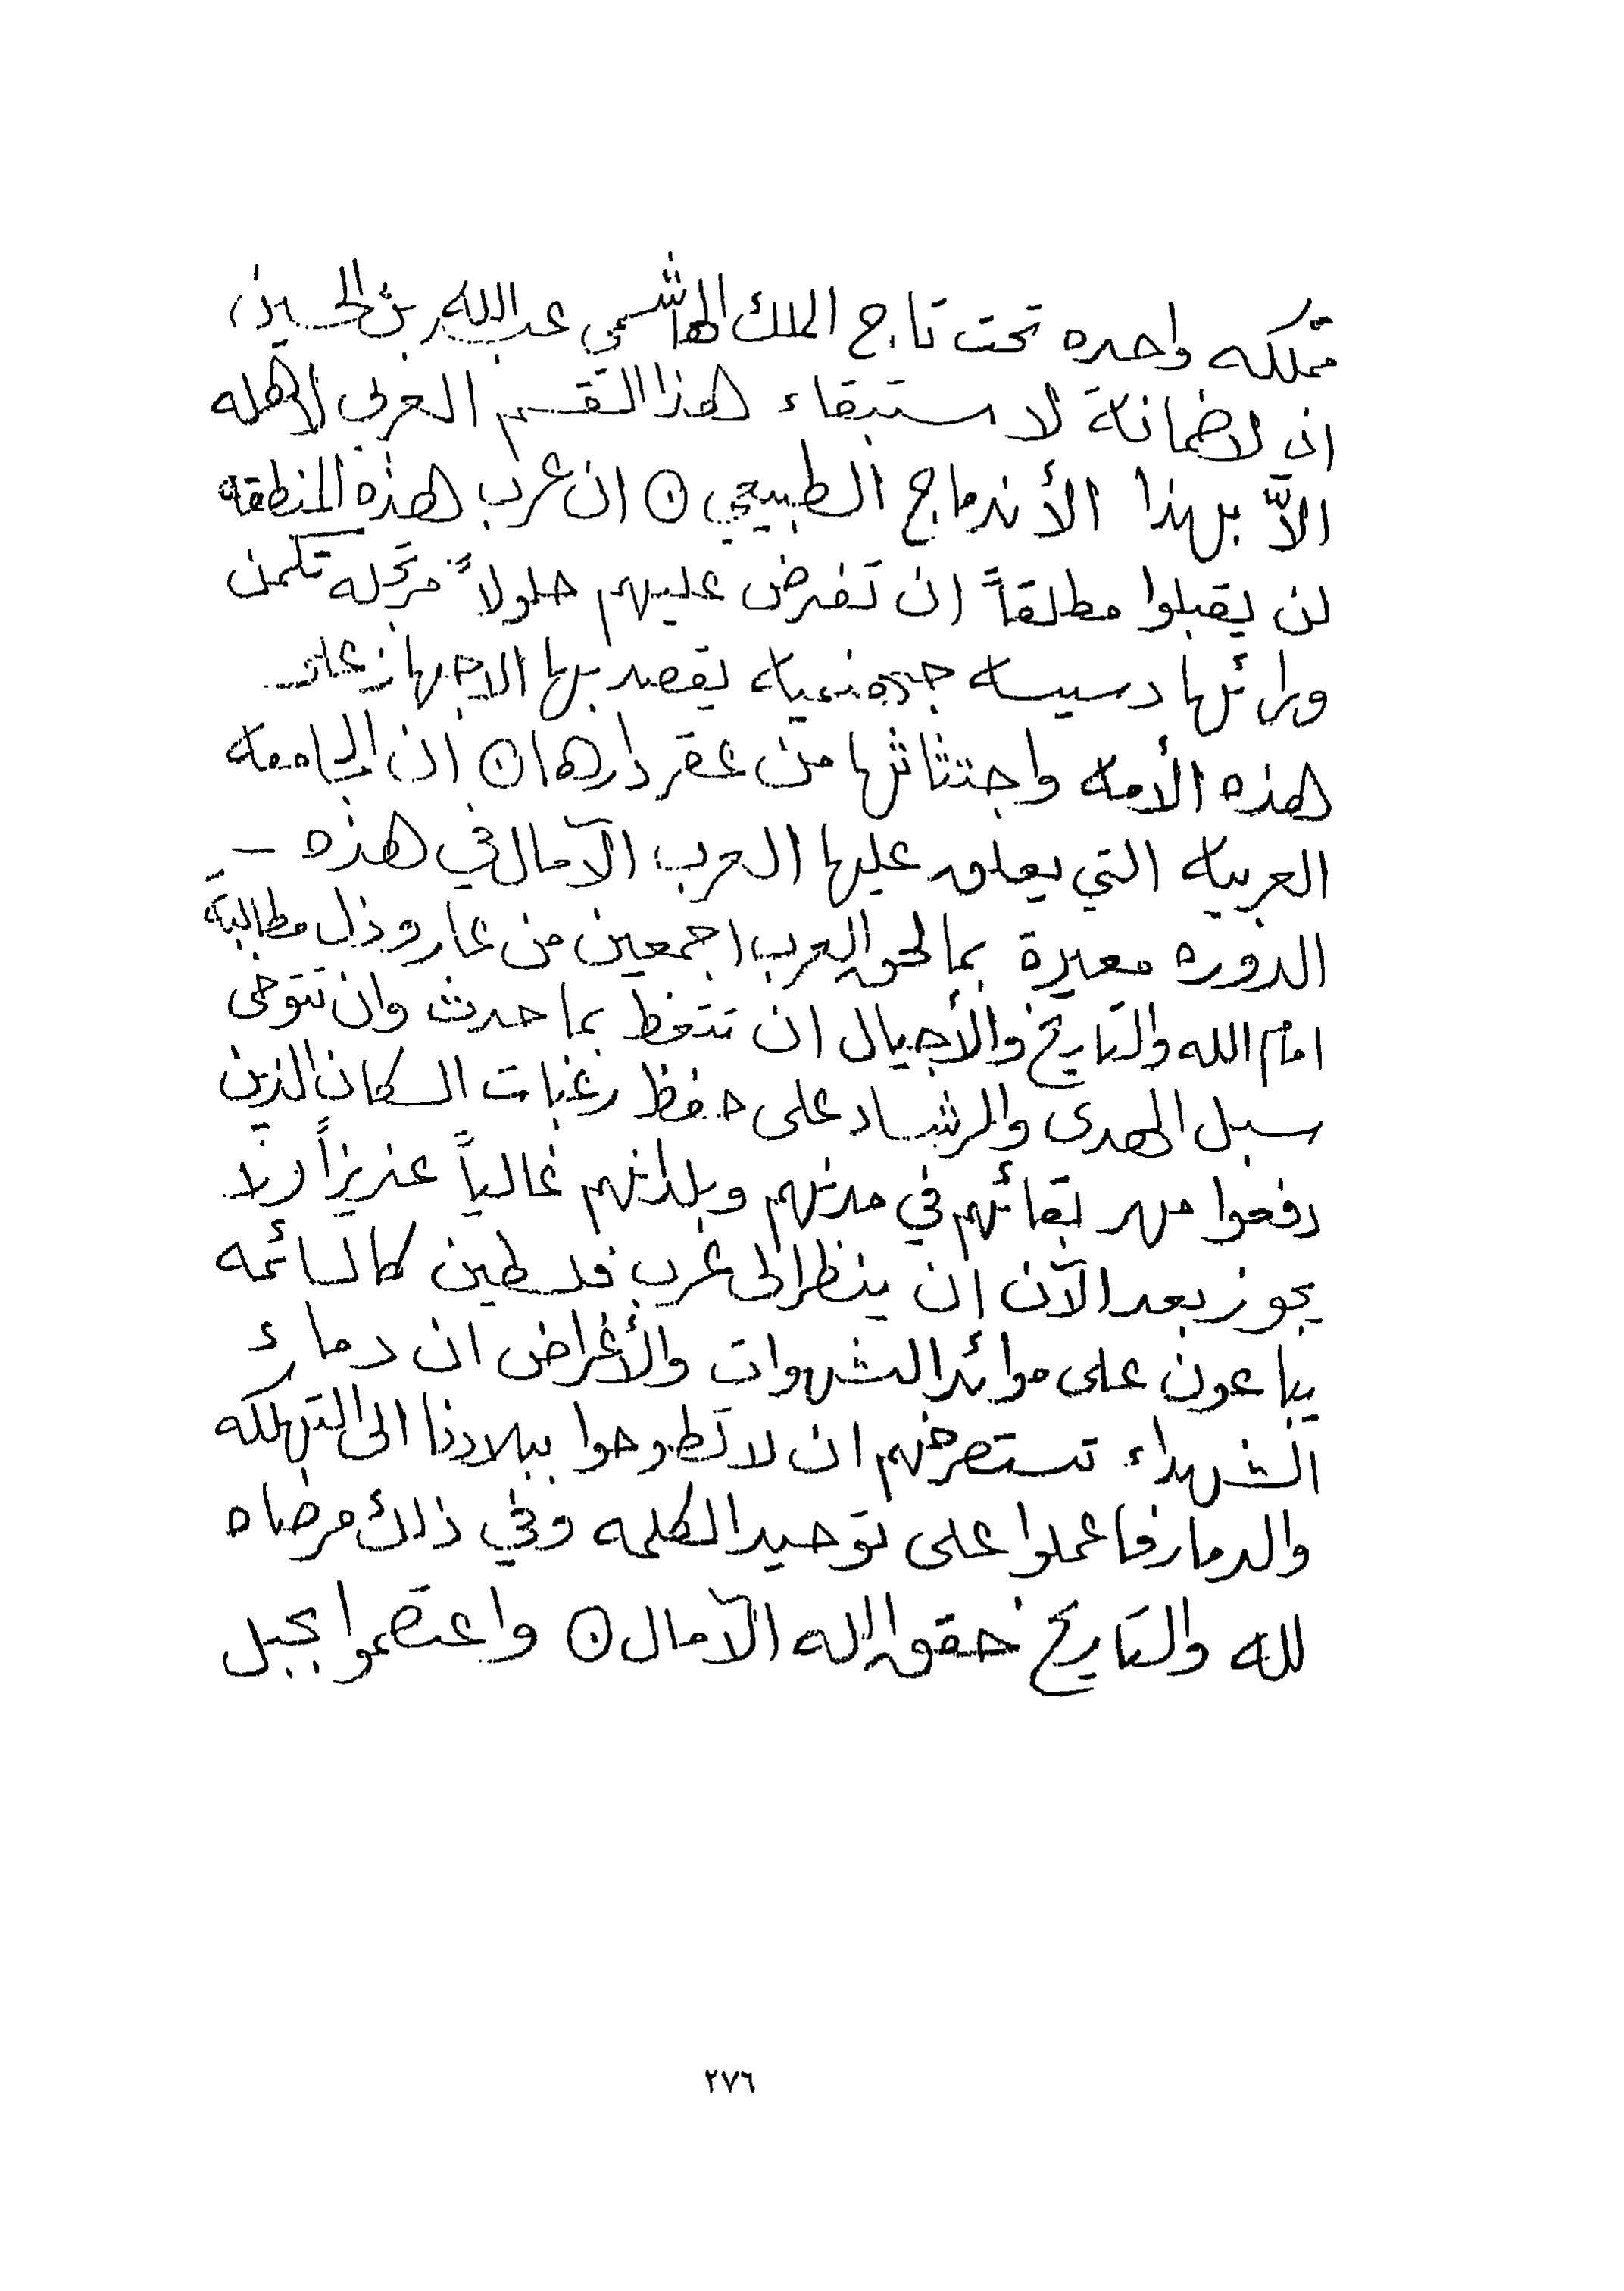 مملكه واحده تحت تاج الملك الهاشمي عبدالله بن الحسين،
ان لا ضمانة لاستبقاء هذا القسم العربي لاهله
الاّ بهذا الأندماج الطبيعي ن ان عرب هذه المنطقه
لن يقبلوا مطلقاً ان تفرض عليهم حلولاً مرتجله تكمن
ورائها دسيسه جهنميه يقصد بها الاجهاز على
هذه الأمه واجتثاثها من عقر دارها ن ان الجامعه
العربيه التي يعلق عليها العرب الآمال في هذه –
الدوره معيرة بما لحق العرب اجمعين من عار وذل مطالبة
امام الله والتاريخ والأجيال ان تتعظ بما حدث وان تتوخى
سبل الهدى والرشاد على حفظ رغبات السكان الذين
دفعوا مهر بقائهم في مدنهم وبلدانهم غالياً عزيزاً ولا
يجوز بعد الآن ان ينظر الى عرب فلسطين كالسائمه
يباعون على موائد الشهوات والأغراض ان دماء
الشهداء تستصرخهم ان لا تطوحوا ببلادنا الى التهلكه
والدمار فاعملوا على توحيد الكلمه وفي ذلك مرضاه
لله والتاريخ حقق الله الآمال ن واعتصموا بحبل
٢٧٦